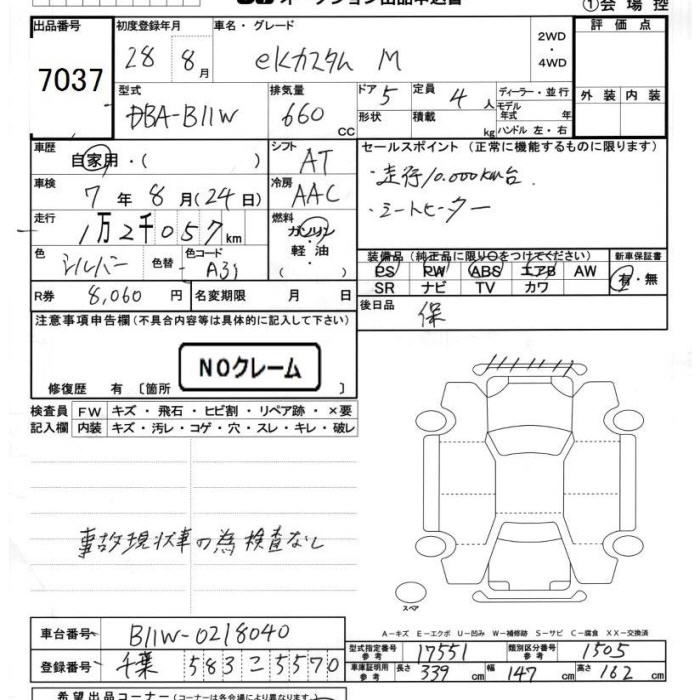 ①会場控
出品番号 初度登録年月 車名・グレード 評価点
7037 28 8月 eKカスタム M 2WD・4WD
型式 排気量 ドア 定員 ディーラー・並行 外装 内装
DBA-B11W 660 CC 5 4人 モデル年式 年
形状 積載 kg ハンドル 左・右
車歴 シフト セールスポイント (正常に機能するものに限ります)
自家用・( ) AT ・走行10.000km台.
車検 冷房 ・シートヒーター
7年8月(24日) AAC
走行 燃料
1万2千057km ガソリン・軽油
色 色替 色コード 装備品 (純正品に限り○をつけてください) 新車保証書
シルバー A31 PS PW ABS エアB AW 有・無
SR ナビ TV カワ
R券 8,060円 名変期限 月 日 後日品
保
注意事項申告欄 (不具合内容等は具体的に記入して下さい)
NOクレーム
修復歴 有 [箇所 ]
検査員 FW キズ・飛石・ヒビ割・リペア跡・×要
記入欄 内装 キズ・汚レ・コゲ・穴・スレ・キレ・破レ
事故現状車の為検査なし
スペア
A-キズ E-エクボ U-凹み W-補修跡 S-サビ C-腐食 XX-交換済
車台番号 B11W-0218040
型式指定番号 参考 17551 類別区分番号 参考 1505
登録番号 千葉 583 と 5570
車庫証明用 参考 長さ 339cm 幅 147cm 高さ 162cm
希望出品コーナー (コーナーは各会場により異なります。)